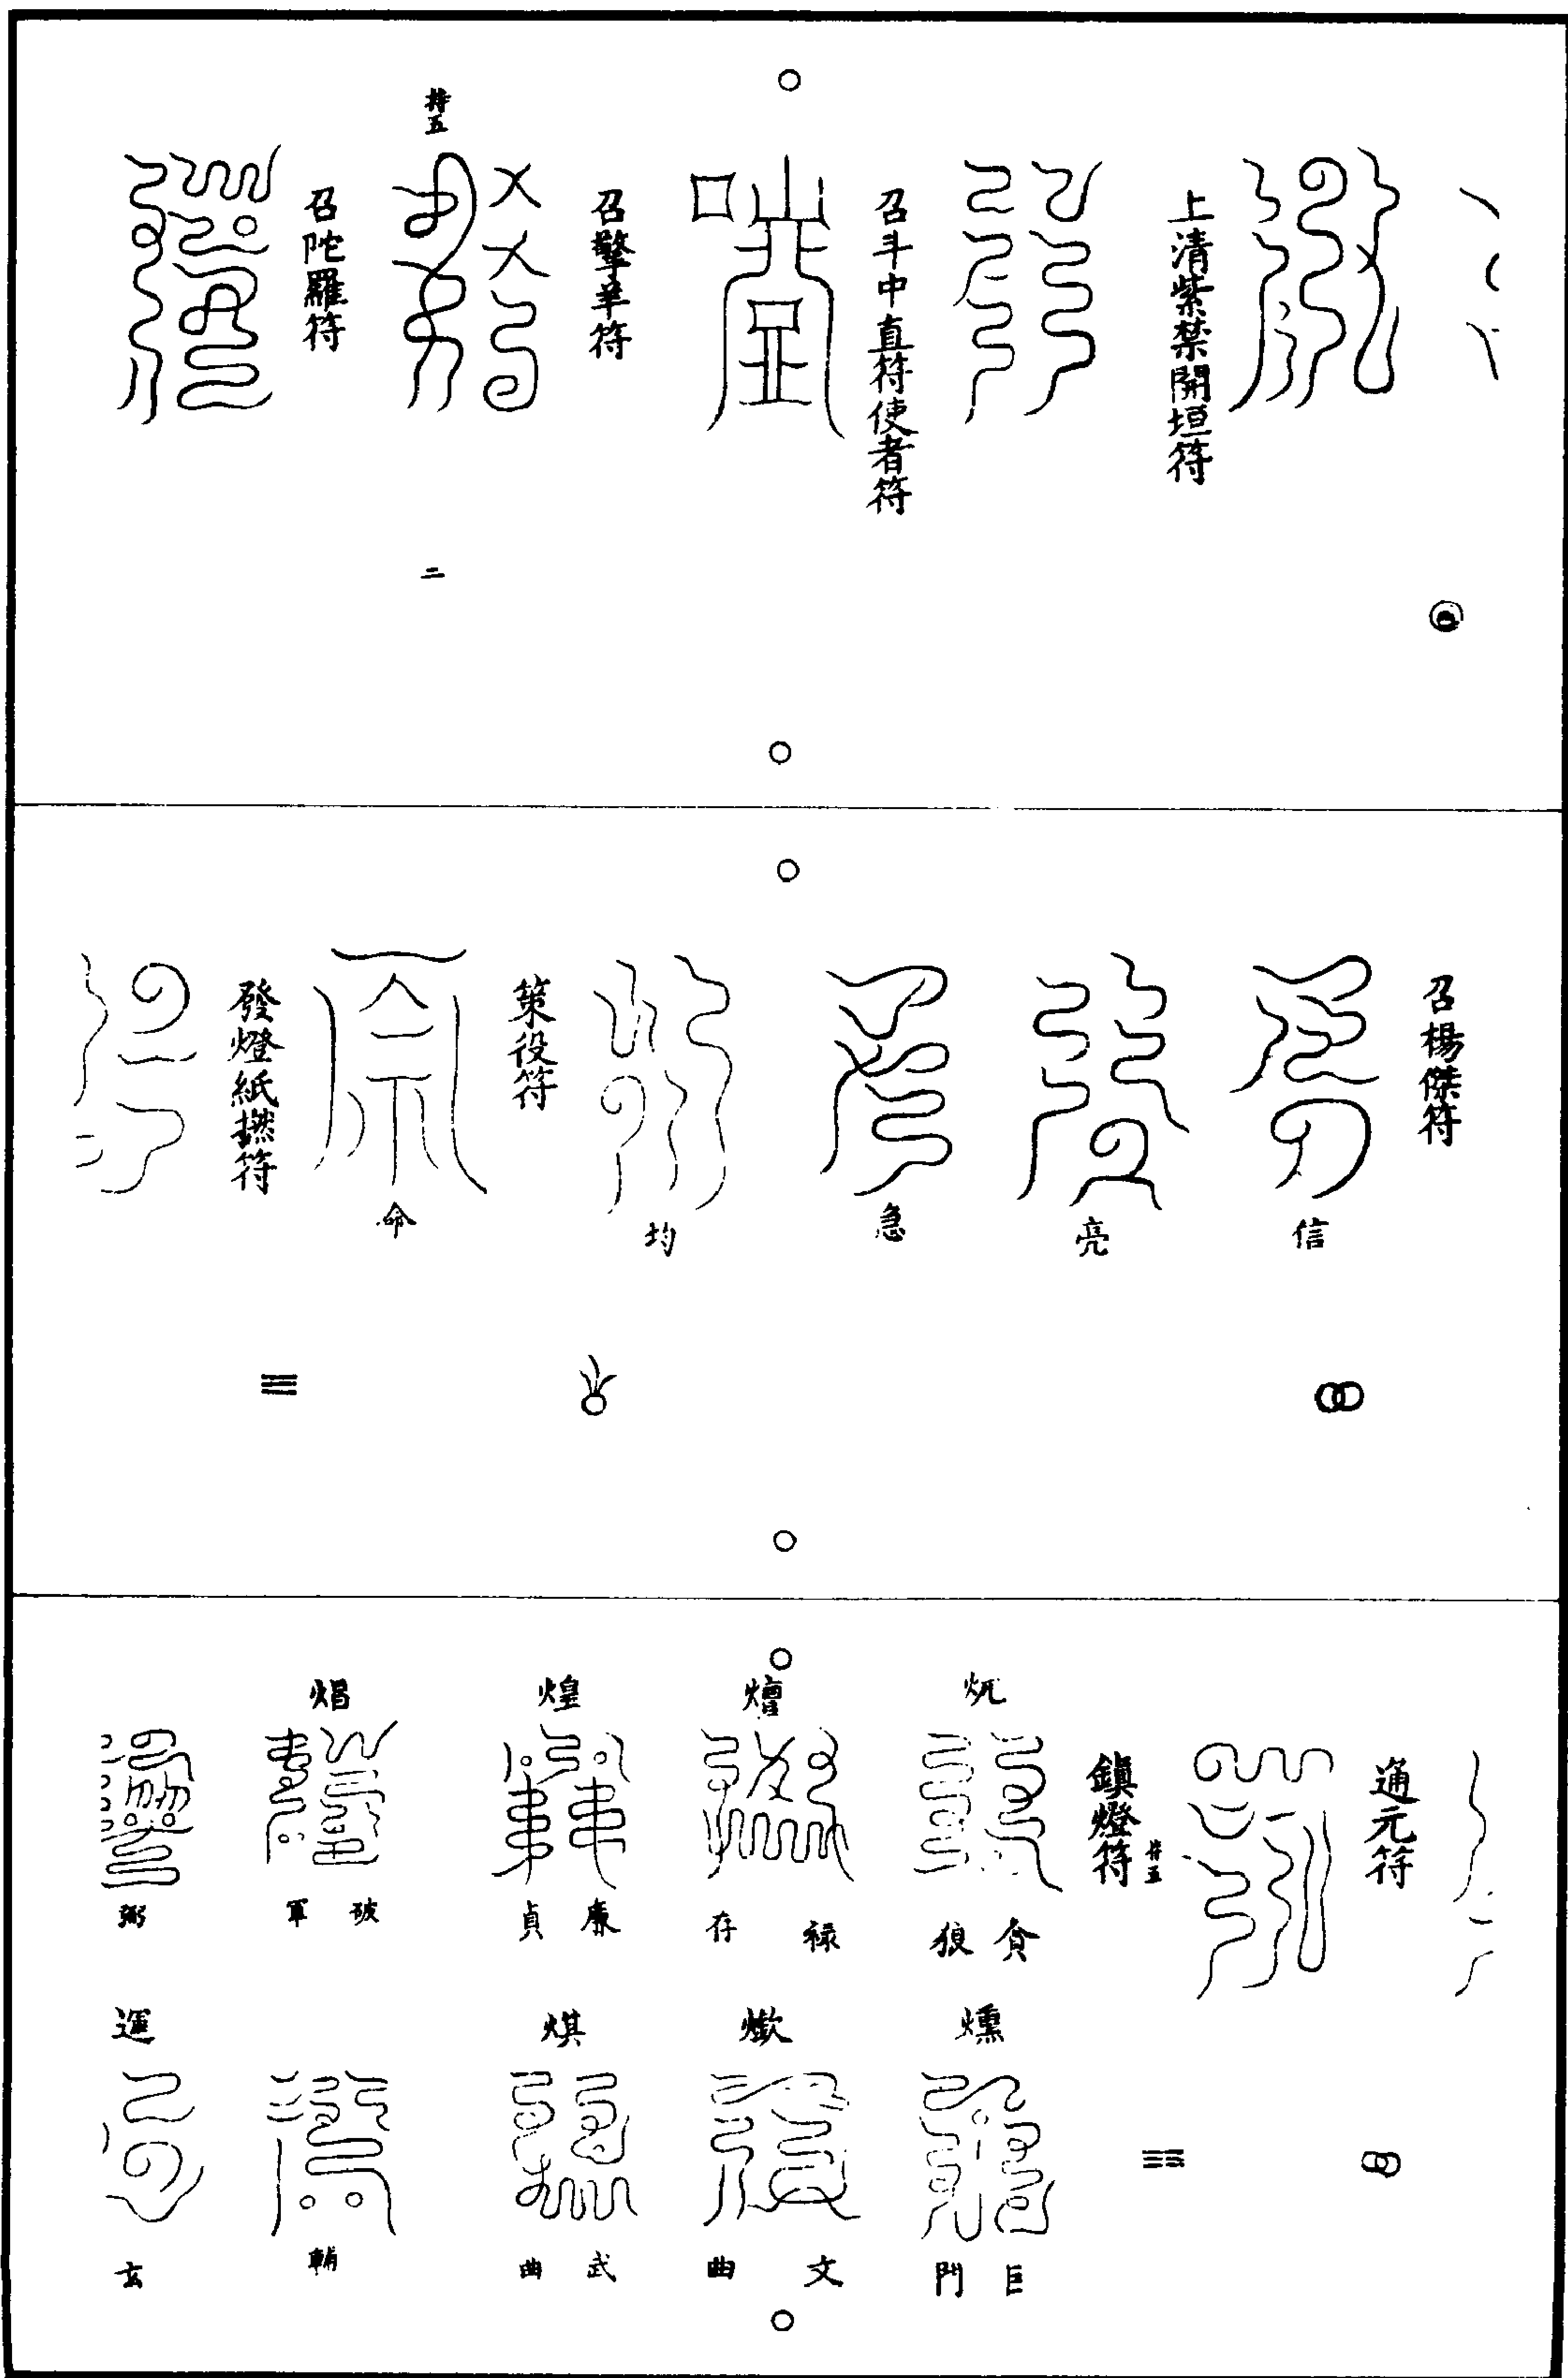 上清紫禁開垣符
召斗中直符使者符
召擎羊符
持五
二
召陀羅符
召楊傑符
信
亮
急
均
策役符
命
發燈紙撚符
通元符
鎮燈符
符五
貪狼
燻
巨門
禄存
文曲
煌
廉貞
武曲
破軍
輔
弼
運
玄